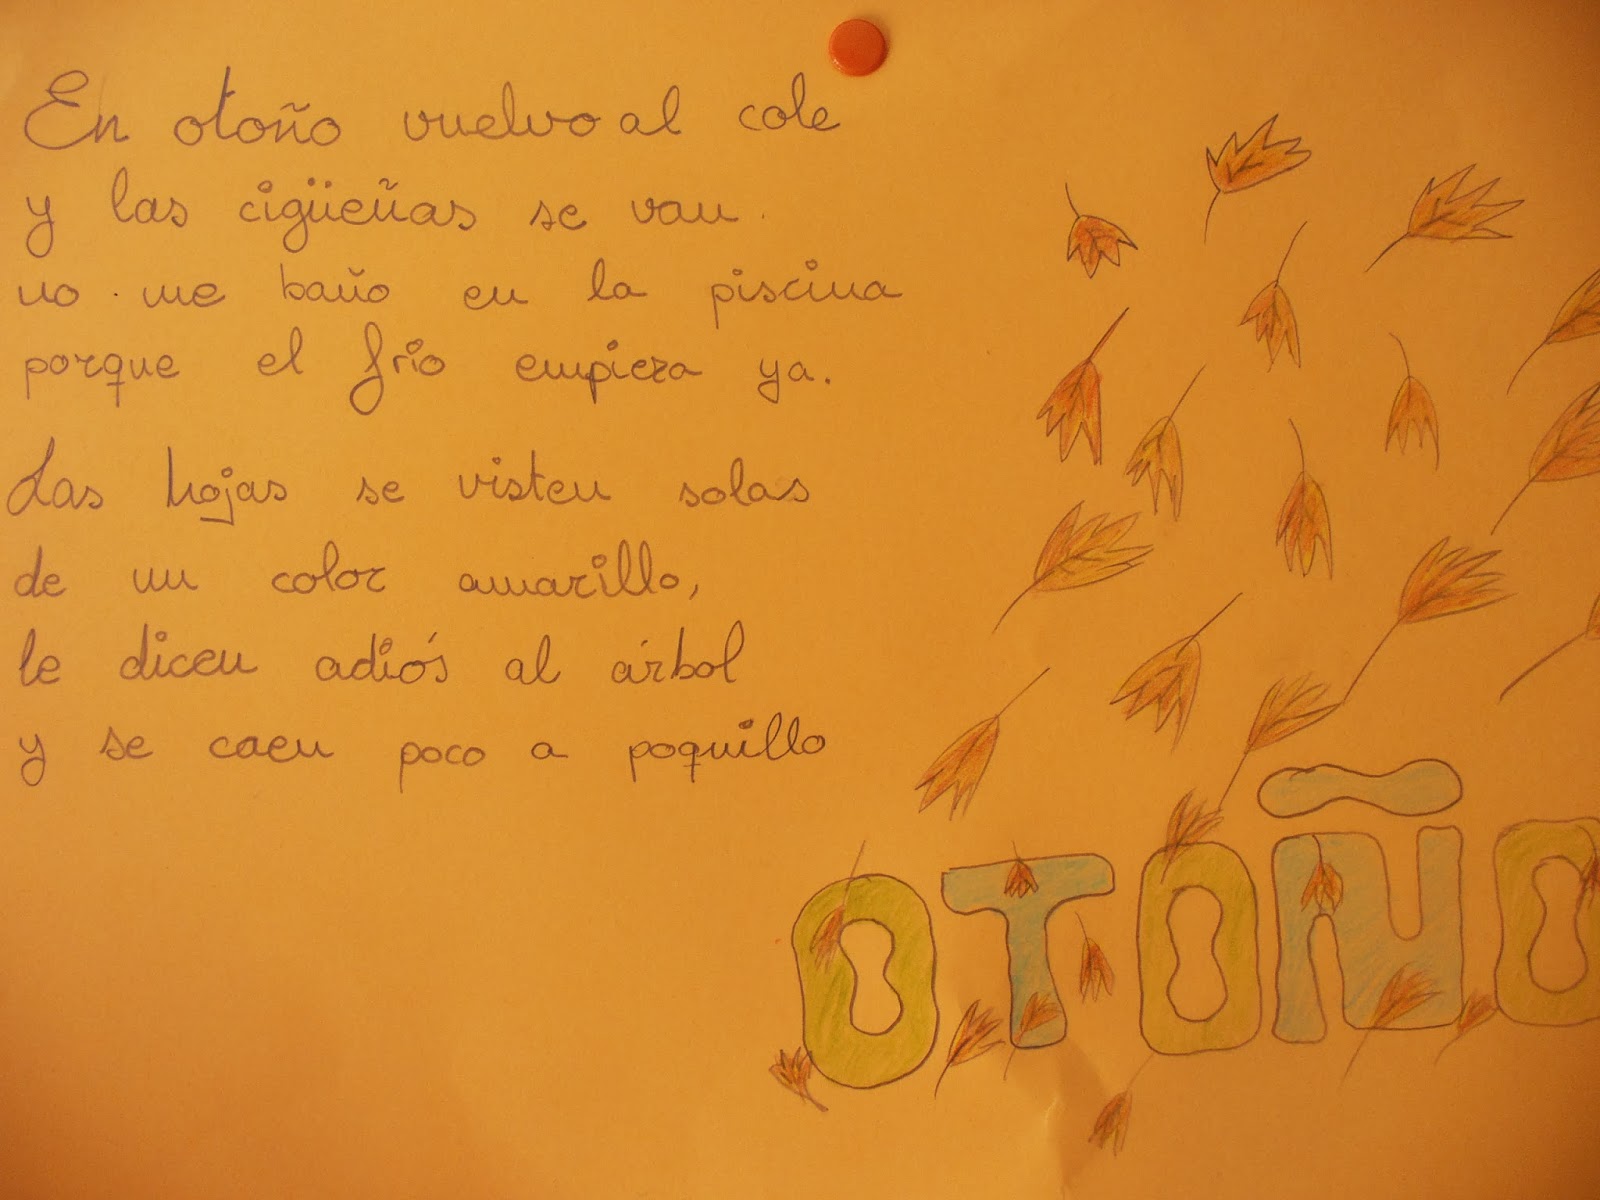 En otoño vuelvo al cole
y las cigüeñas se van
no me baño en la piscina
porque el frio empieza ya.
Las hojas se visten solas
de un color amarillo,
le dicen adiós al árbol
y se caen poco a poquillo
OTOÑO